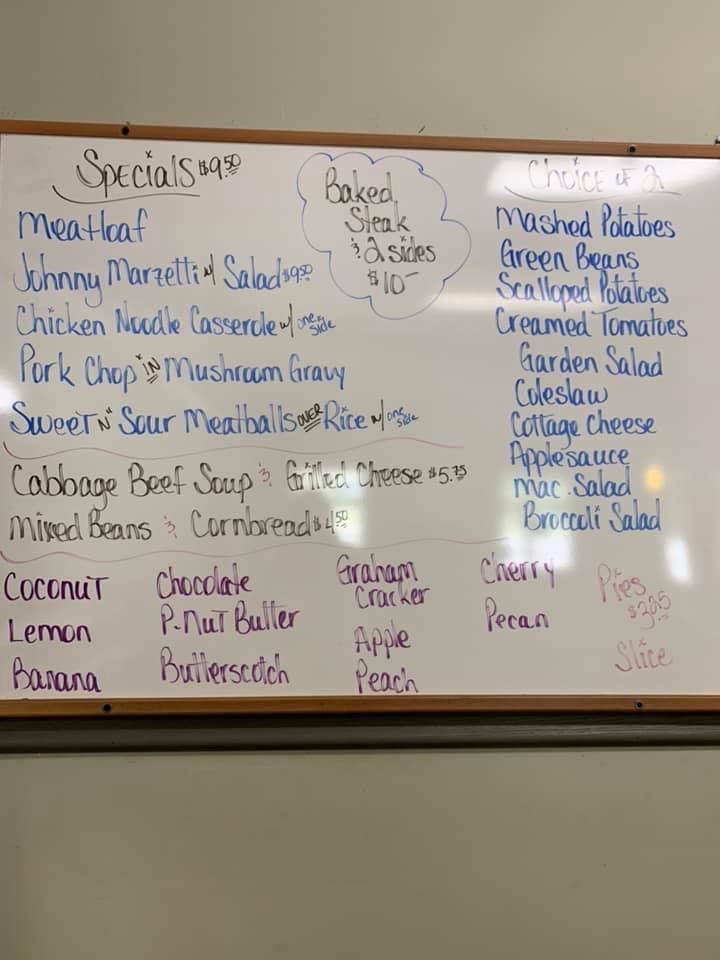 Specials $9.50
Meatloaf
Johnny Marzetti w/ Salad $9.50
Chicken Noodle Casserole w/ one side
Pork Chop IN Mushroom Gravy
Sweet N' Sour Meatballs OVER Rice w/ one side
Baked
Steak
& 2 sides
$10-
Choice of 2
Mashed Potatoes
Green Beans
Scalloped Potatoes
Creamed Tomatoes
Garden Salad
Coleslaw
Cottage Cheese
Applesauce
Mac. Salad
Broccoli Salad
Cabbage Beef Soup & Grilled Cheese $5.75
Mixed Beans & Cornbread $4.50
Coconut
Lemon
Banana
Chocolate
P-Nut Butter
Butterscotch
Graham
Cracker
Apple
Peach
Cherry
Pecan
Pies
$3.25
Slice